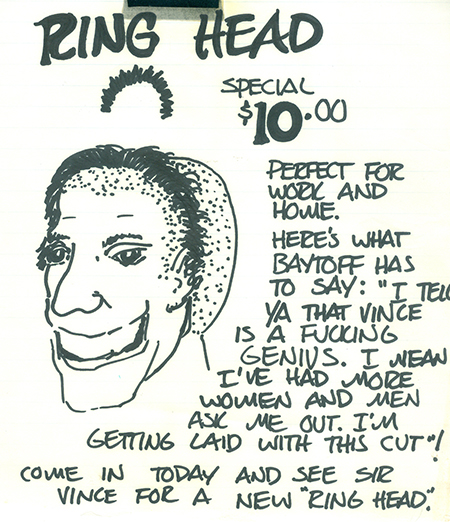 RING HEAD
SPECIAL
$10.00
PERFECT FOR
WORK AND
HOME.
HERE'S WHAT
BAYTOFF HAS
TO SAY: "I TELL
YA THAT VINCE
IS A FUCKING
GENIUS. I MEAN
I'VE HAD MORE
WOMEN AND MEN
ASK ME OUT. I'M
GETTING LAID WITH THIS CUT"!
COME IN TODAY AND SEE SIR
VINCE FOR A NEW "RING HEAD."